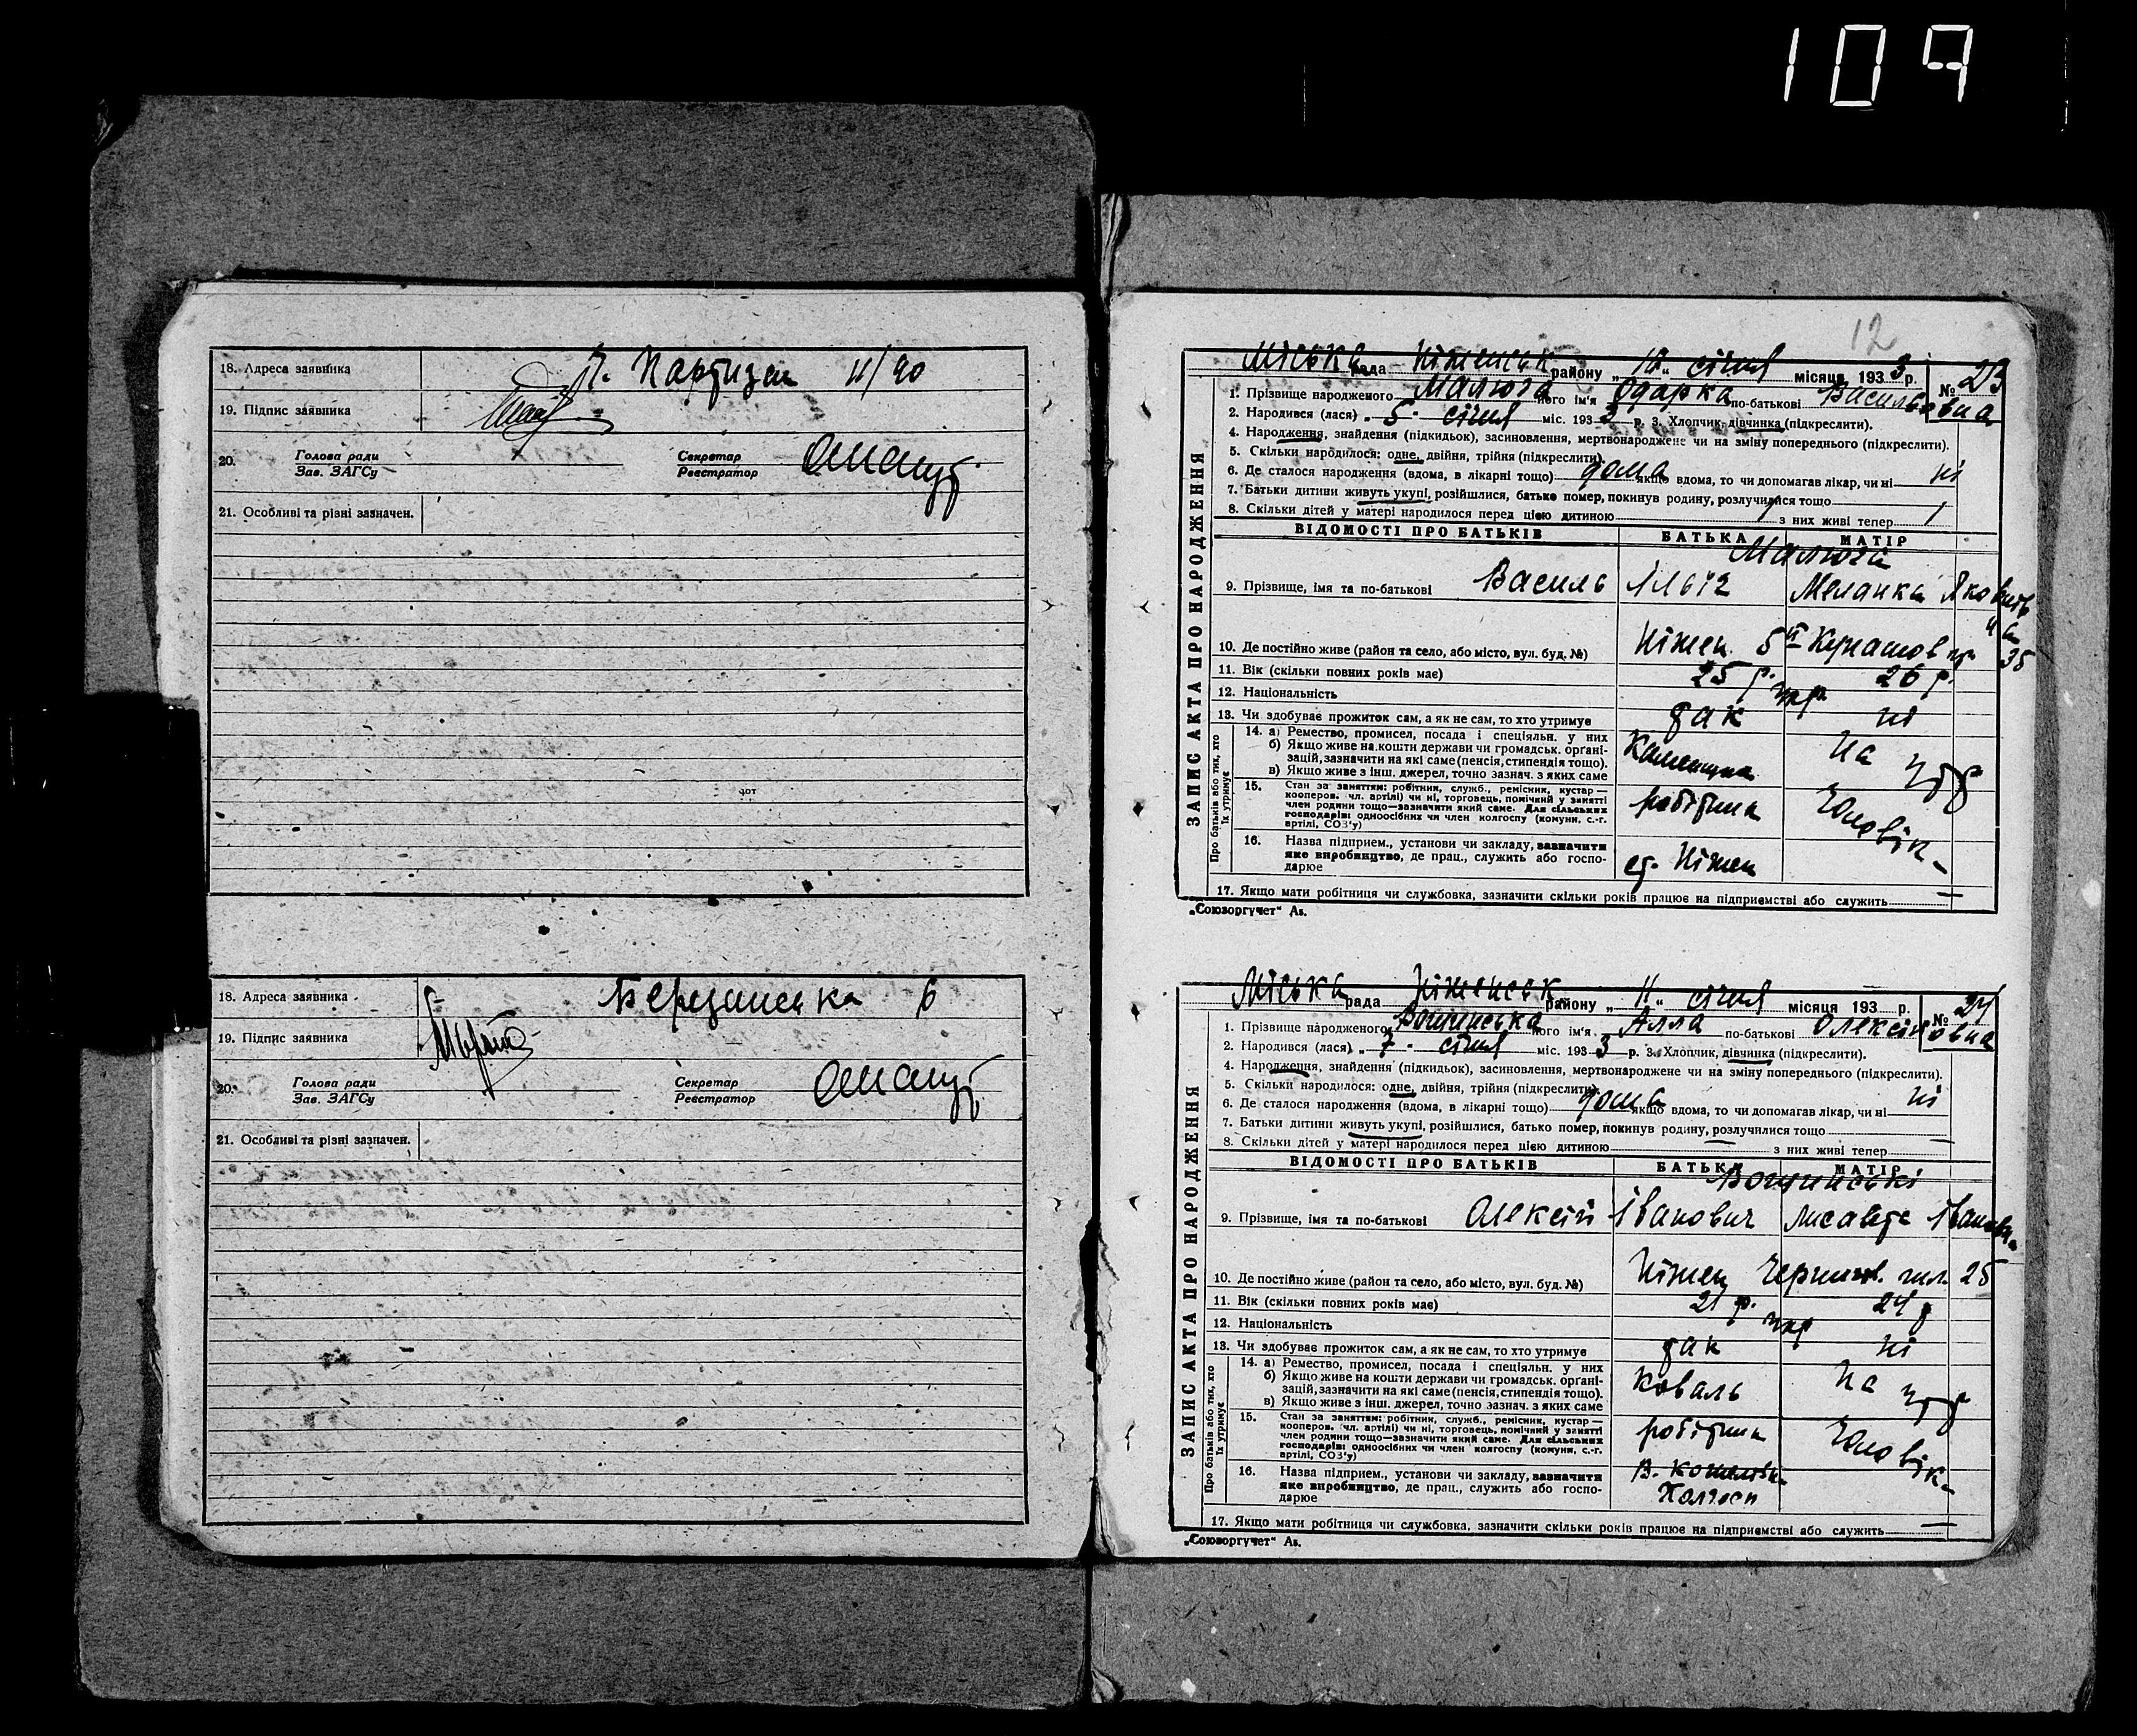 109
18. Адреса заявника Ч. Партизан 11/90
19. Підпис заявника
20. Голова ради Зав. ЗАГСу Секретар Реєстратор
21. Особливі та різні зазначен.
18. Адреса заявника Березанська 6
19. Підпис заявника
20. Голова ради Зав. ЗАГСу Секретар Реєстратор
21. Особливі та різні зазначен.
12
Міська рада Ніженськ району „ “ січня місяця 1933 р. № 23
ЗАПИС АКТА ПРО НАРОДЖЕННЯ
1. Прізвище народженого Малюга його ім'я Одарка по-батькові Васильовна
2. Народився (лася) „ 5 “ січня міс. 1933 р. 3. Хлопчик, дівчинка (підкреслити).
4. Народження, знайдення (підкидьок), засиновлення, мертвонароджене чи на зміну попереднього (підкреслити).
5. Скільки народилося: одне, двійня, трійня (підкреслити)
6. Де сталося народження (вдома, в лікарні тощо) дома якщо вдома, то чи допомагав лікар, чи ні ні
7. Батьки дитини живуть укупі, розійшлися, батько помер, покинув родину, розлучилися тощо
8. Скільки дітей у матері народилося перед цією дитиною 1 з них живі тепер 1
ВІДОМОСТІ ПРО БАТЬКІВ БАТЬКА МАТІР
Малюга
9. Прізвище, імя та по-батькові Василь Ілліч Меланка Яковна
10. Де постійно живе (район та село, або місто, вул. буд. №) Ніжен. 5й Кунашов 35
11. Вік (скільки повних років має) 25 р. 26 р.
12. Національність укр
13. Чи здобуває прожиток сам, а як не сам, то хто утримує так ні
Про батьків або тих, хто їх утримує
14. а) Ремество, промисел, посада і спеціяльн. у них
б) Якщо живе на кошти держави чи громадськ. органі-
зацій, зазначити на які саме (пенсія, стипендія тощо).
в) Якщо живе з інш. джерел, точно зазнач. з яких саме
Каменщик На утр
15. Стан за заняттям: робітник, служб., ремісник, кустар —
кооперов. чл. артілі) чи ні, торговець, помічний у занятті
член родини тощо—зазначити який саме. Для сільських
господарів: одноосібних чи член колгоспу (комуни, с.-г.
артілі, СОЗ'у)
робітник Чоловік
16. Назва підприєм., установи чи закладу, зазначити
яке виробництво, де прац., служить або госпо-
дарює
ст. Ніжен
17. Якщо мати робітниця чи службовка, зазначити скільки років працює на підприємстві або служить —
„Союзоргучет“ Ав.
Міська рада Ніженськ району „ 11 “ січня місяця 193 р. № 24
ЗАПИС АКТА ПРО НАРОДЖЕННЯ
1. Прізвище народженого Вощинська його ім'я Алла по-батькові Олексійовна
2. Народився (лася) „ 7 “ січня міс. 1933 р. 3. Хлопчик, дівчинка (підкреслити).
4. Народження, знайдення (підкидьок), засиновлення, мертвонароджене чи на зміну попереднього (підкреслити).
5. Скільки народилося: одне, двійня, трійня (підкреслити)
6. Де сталося народження (вдома, в лікарні тощо) дома якщо вдома, то чи допомагав лікар, чи ні ні
7. Батьки дитини живуть укупі, розійшлися, батько помер, покинув родину, розлучилися тощо
8. Скільки дітей у матері народилося перед цією дитиною — з них живі тепер —
ВІДОМОСТІ ПРО БАТЬКІВ БАТЬКА МАТІР
Вощинські
9. Прізвище, імя та по-батькові Олексій Іванович Лисавета Івановна
10. Де постійно живе (район та село, або місто, вул. буд. №) Ніжен Чернигов. шл. 25
11. Вік (скільки повних років має) 21 р. 24 р
12. Національність укр
13. Чи здобуває прожиток сам, а як не сам, то хто утримує так ні
Про батьків або тих, хто їх утримує
14. а) Ремество, промисел, посада і спеціяльн. у них
б) Якщо живе на кошти держави чи громадськ. органі-
зацій, зазначити на які саме (пенсія, стипендія тощо).
в) Якщо живе з інш. джерел, точно зазнач. з яких саме
Коваль На утр
15. Стан за заняттям: робітник, служб., ремісник, кустар —
кооперов. (чл. артілі) чи ні, торговець, помічний у занятті
член родини тощо—зазначити який саме. Для сільських
господарів: одноосібних чи член колгоспу (комуни, с.-г.
артілі, СОЗ'у)
робітник Чоловік
16. Назва підприєм., установи чи закладу, зазначити
яке виробництво, де прац., служить або госпо-
дарює
В. Кошелівк. Колгосп
17. Якщо мати робітниця чи службовка, зазначити скільки років працює на підприємстві або служить —
„Союзоргучет“ Ав.